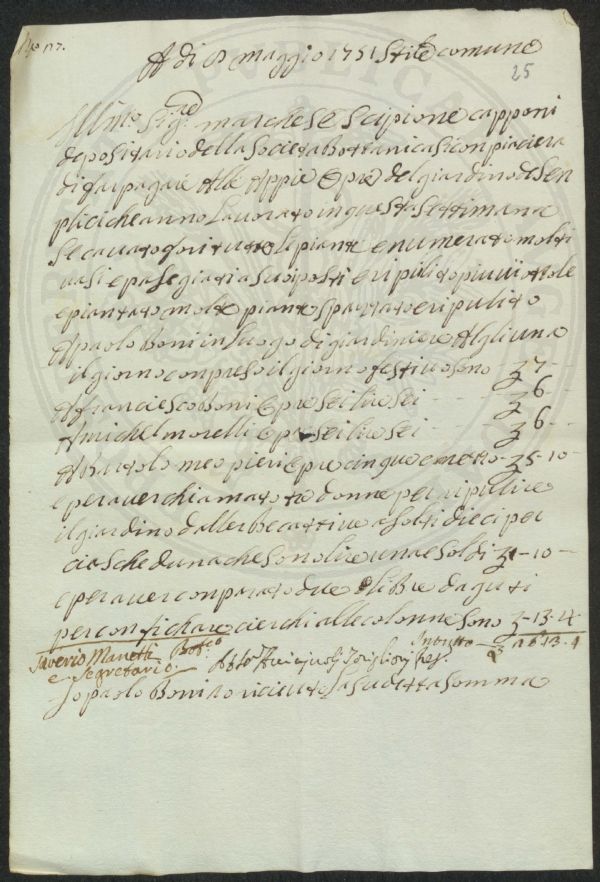 N.o 17.
A di 8 maggio 1751 Stile comune
25
Ill.mo Sig.re marchese Scipione capponi
depositario della Societa botanica si conpiacera
di far pagare Alle Appie Opre del giardino de Sen
plici che anno lavorato in questa Settimana
Se cavato fori tutte le piante e numerato molti
vasi e pasegiati a Suoi posti e ripilito più viottole
e piantato molte piante spazzato e ripulito
A paolo Boni in luogo di giardiniere Algli una
il giorno conpreso il giorno festivo sono 7
A franciesco boni Opre sei lire sei 6
A michel morelli Opre sei lire sei 6
A Bartolomeo pieri Opre cinque e mezzo 5-10
e per aver chiamato tre donne per ripulire
il giardino dall erbe cattive a soldi dieci per
ciascheduna che sono lire una e soldi 1-10
e per aver conparato due libre daguti
per confichare cierchi alle colonne sono -13-4
Saverio Manetti Bot.co In tutto 26.13.4
e Segretario
Io paolo Boni o riceuto la sudetta somma